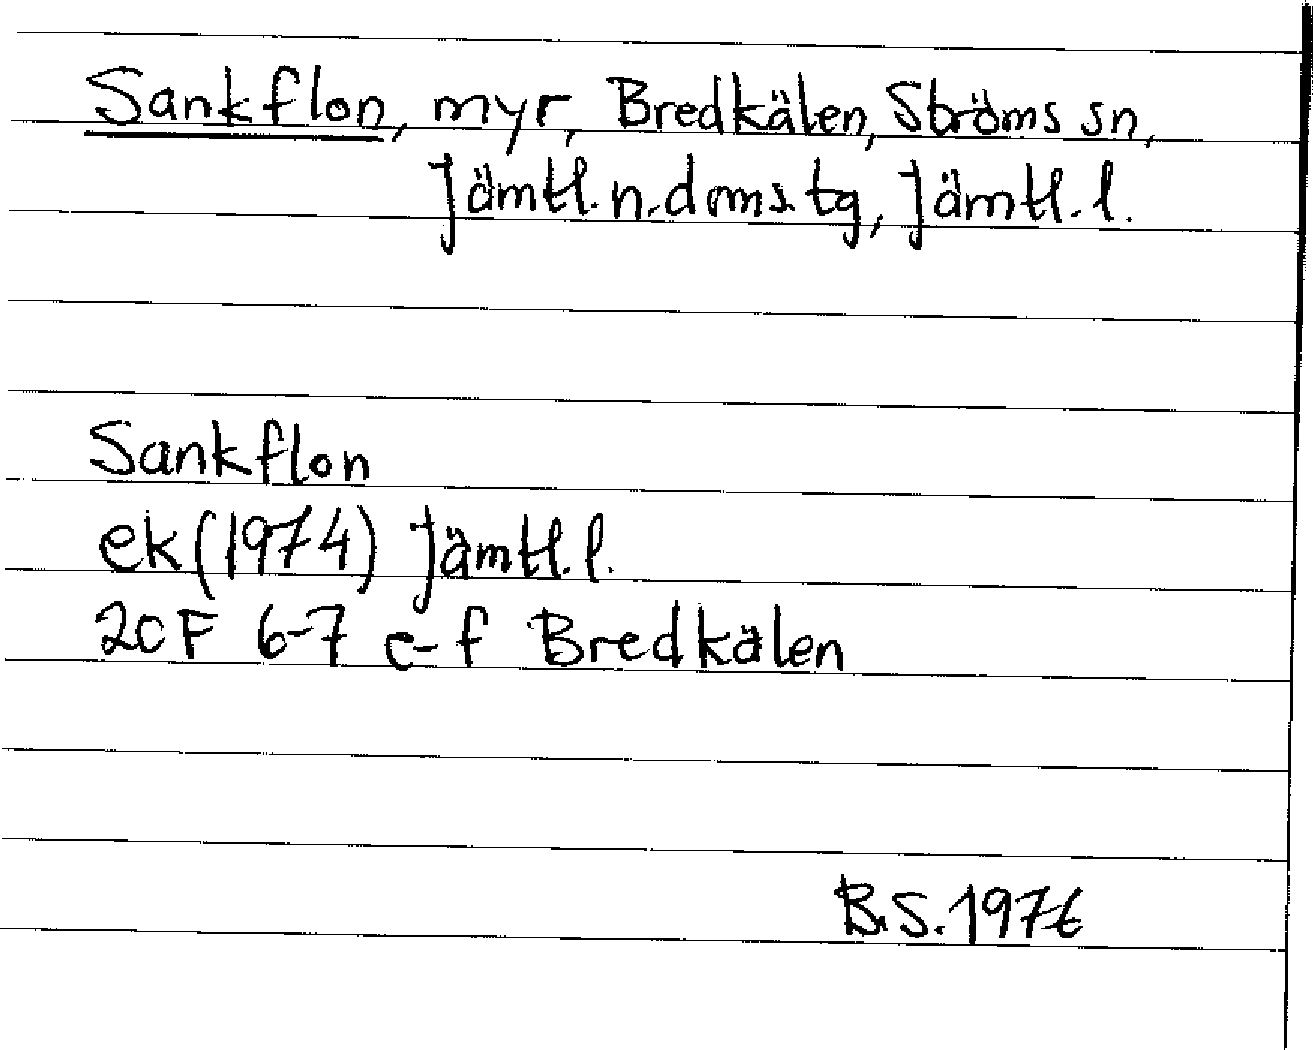 Sankflon, myr, Bredkälen, Ströms sn,
Jämtl. n. doms. tg, Jämtl. l.
Sankflon
ek (1974) Jämtl. l.
20F 6-7 e-f Bredkälen
B.S. 1976